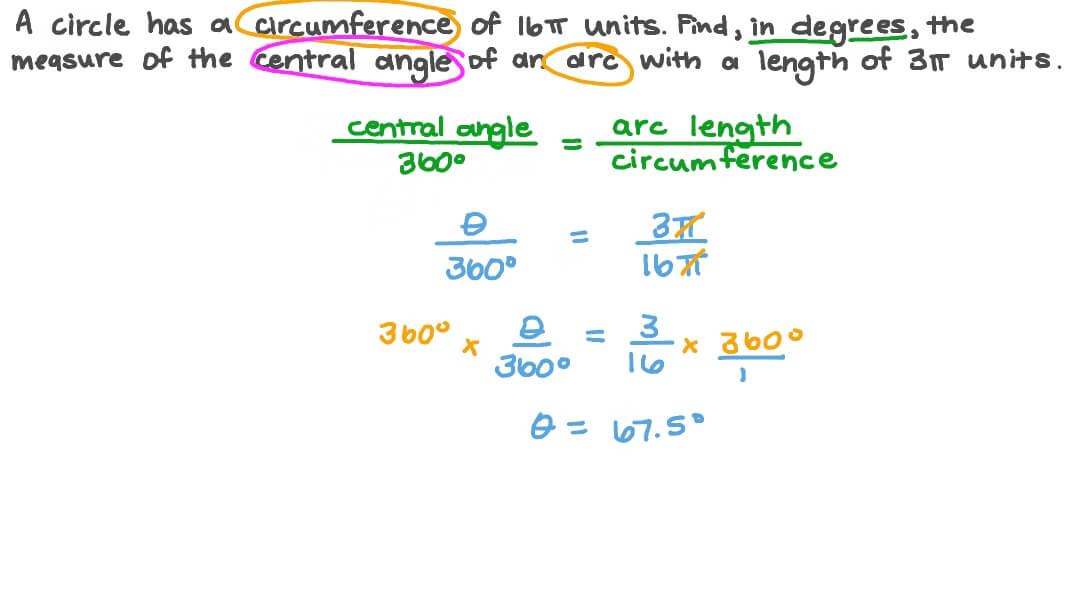 A circle has a circumference of 16π units. Find, in degrees, the
measure of the central angle of an arc with a length of 3π units.
central angle / 360° = arc length / circumference
θ / 360° = 3π / 16π
360° × θ / 360° = 3 / 16 × 360° / 1
θ = 67.5°